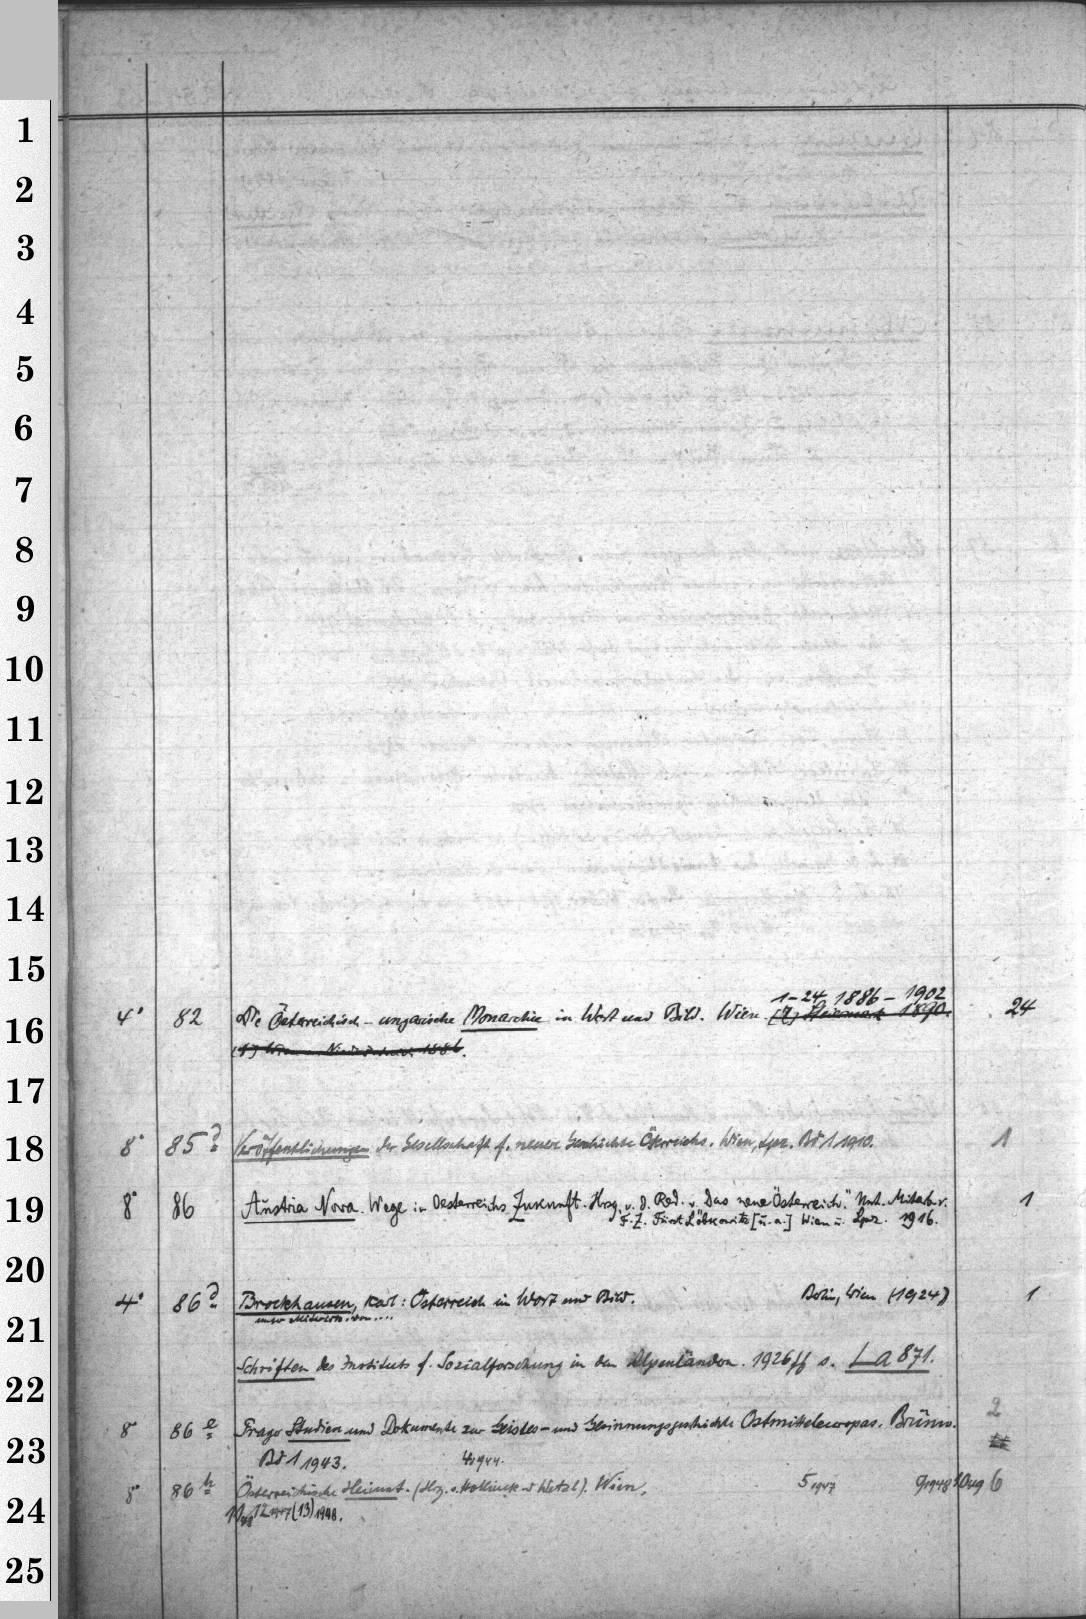 1
2
3
4
5
6
7
8
9
10
11
12
13
14
15
16
17
18
19
20
21
22
23
24
25
1-24 1886-1902
4° 82 Die Österreichisch-ungarische Monarchie in Wort und Bild. Wien (7) Steiermark 1890. 24
(1) Wien u. Niederösterr. 1886.
8° 85 Veröffentlichungen der Gesellschaft f. neuere Geschichte Österreichs. Wien, Lpz. Bd 1 1910. 1
8° 86 Austria Nova. Wege in Oesterreichs Zukunft. Hrsg. v. d. Red. v. "Das neue Österreich." Unt. Mitarb. v. 1
F. Z. Fürst Lobkowitz [u.a.] Wien u. Lpz. 1916.
4° 86 Brockhausen, Karl: Österreich in Wort und Bild. Berlin, Wien (1924) 1
unter Mitwirk. von ....
Schriften des Instituts f. Sozialforschung in den Alpenländern. 1926ff s. La 871.
8° 86 e Prager Studien und Dokumente zur Geistes- und Gesinnungsgeschichte Ostmitteleuropas. Brünn. 2
Bd 1 1943. 4 1944.
8° 86 h Österreichische Heimat. (Hrg. v. und Wetzl). Wien, 5 1947 9 1948 10 6
12 1947 (13) 1948.